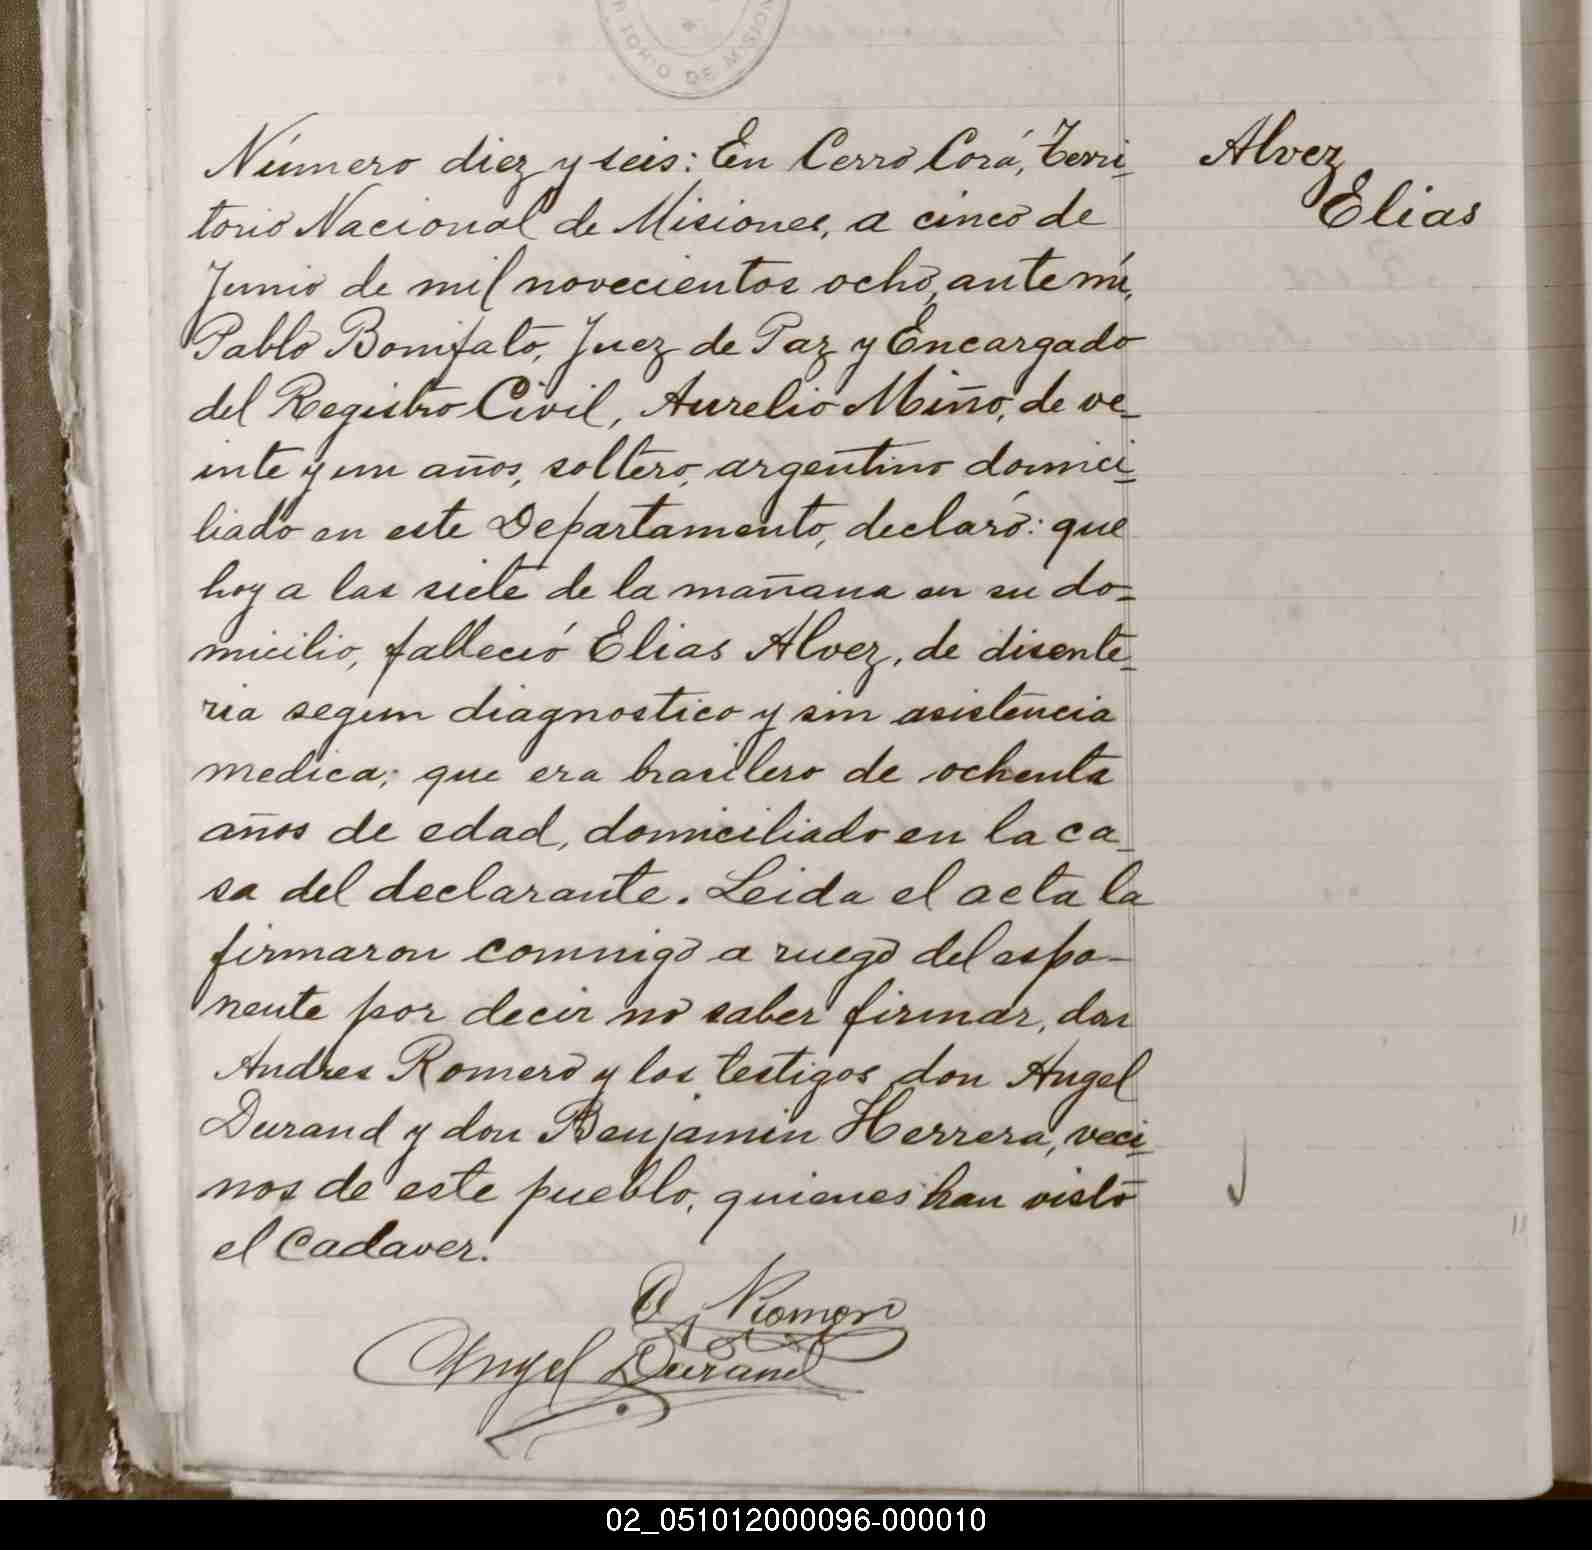 RIORIO DE MISION
Número diez y seis: En Cerro Corá, Terri-
torio Nacional de Misiones, a cinco de
Junio de mil novecientos ocho, ante mi,
Pablo Bonifato, Juez de Paz y Encargado
del Registro Civil, Aurelio Miño, de ve-
inte y un años, soltero, argentino domici-
liado en este Departamento, declaró: que
hoy a las siete de la mañana en su do-
micilio, falleció Elias Alvez, de disente-
ria segun diagnostico y sin asistencia
medica; que era brasilero de ochenta
años de edad, domiciliado en la ca-
sa del declarante. Leida el acta la
firmaron commigo a ruego del espo-
nente por decir no saber firmar, don
Andres Romero y los testigos don Angel
Durand y don Benjamin Herrera, veci-
nos de este pueblo, quienes han visto
el Cadaver.
Alvez
Elias
A. Romero
Angel Durand
02_051012000096-000010